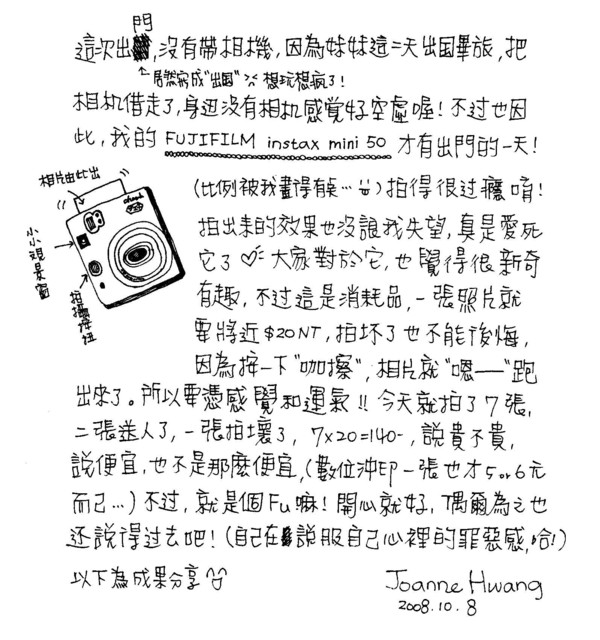 門
這次出,沒有帶相機,因為妹妹這二天出国畢旅,把
←居然寫成"出国" 想玩想瘋了!
相机借走了,身边沒有相机感覺好空虛喔!不过也因
此,我的 FUJIFILM instax mini 50 才有出門的一天!
相片由此出
小小視景窗
拍攝按鈕
(比例被我畫得有桌…)拍得很过癮唷!
拍出來的效果也沒讓我失望,真是愛死
它了♡大家對於它,也覺得很新奇
有趣,不过這是消耗品,一張照片就
要將近$20NT,拍坏了也不能後悔,
因為按一下"咖擦",相片就"嗯——"跑
出來了。所以要憑感覺和運氣!!今天就拍了7張,
二張送人了,一張拍壞了,7×20=140-,說貴不貴,
說便宜,也不是那麼便宜,(數位沖印一張也才5or6元
而已…)不过,就是個Fu嘛!開心就好,偶爾為之也
还說得过去吧!(自己在說服自己心裡的罪惡感,哈!)
以下為成果分享
Joanne Hwang
2008.10.8